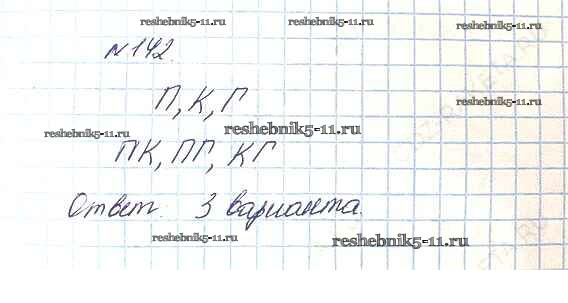 reshebnik5-11.ru reshebnik5-11.ru reshebnik5-11.ru
№142.
П, К, Г
reshebnik5-11.ru
reshebnik5-11.ru reshebnik5-11.ru
ПК, ПГ, КГ
Ответ. 3 варианта.
reshebnik5-11.ru reshebnik5-11.ru